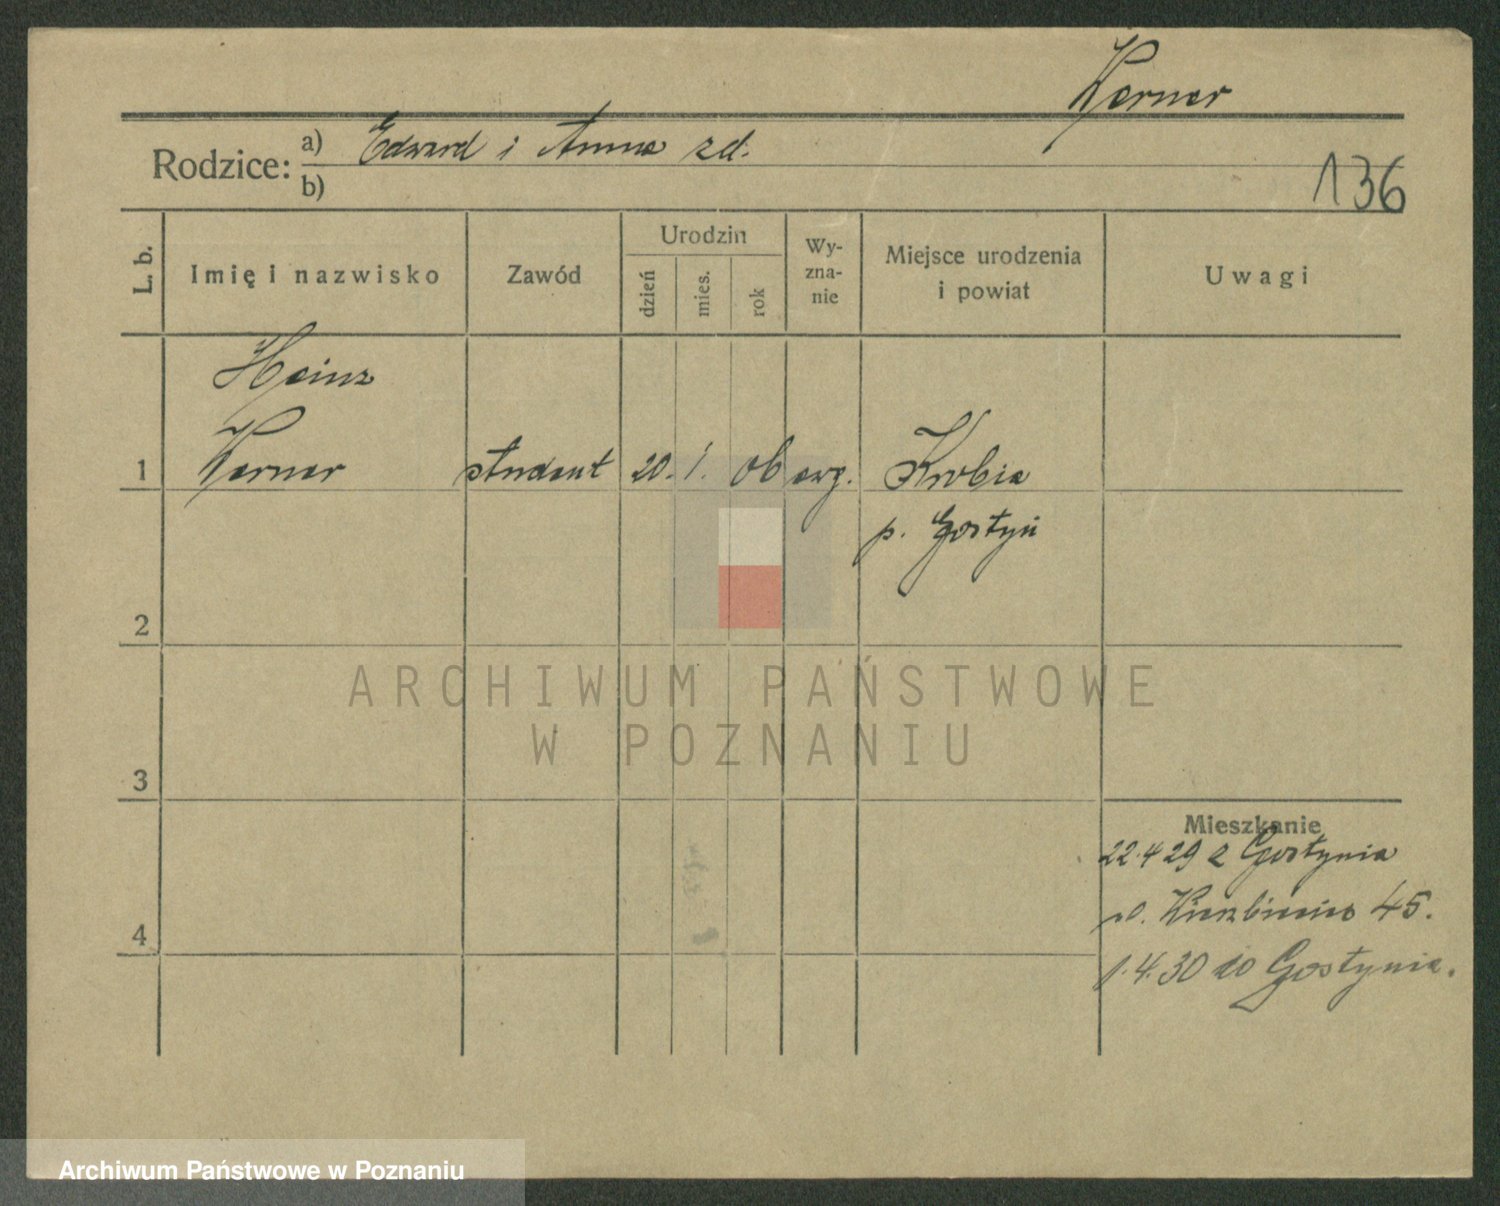 Kerner
Rodzice: a) Edward i Anna zd.
b)
136
L. b. Imię i nazwisko Zawód Urodzin dzień mies. rok Wy-zna-nie Miejsce urodzenia i powiat Uwagi
Heinz
1 Kerner student 20. 1. 06 ewg. Krobia
p. Gostyń
2
3
4
Mieszkanie
22.4 29 z Gostynia
45.
1.4.30 do Gostynia.
ARCHIWUM PAŃSTWOWE
W POZNANIU
Archiwum Państwowe w Poznaniu